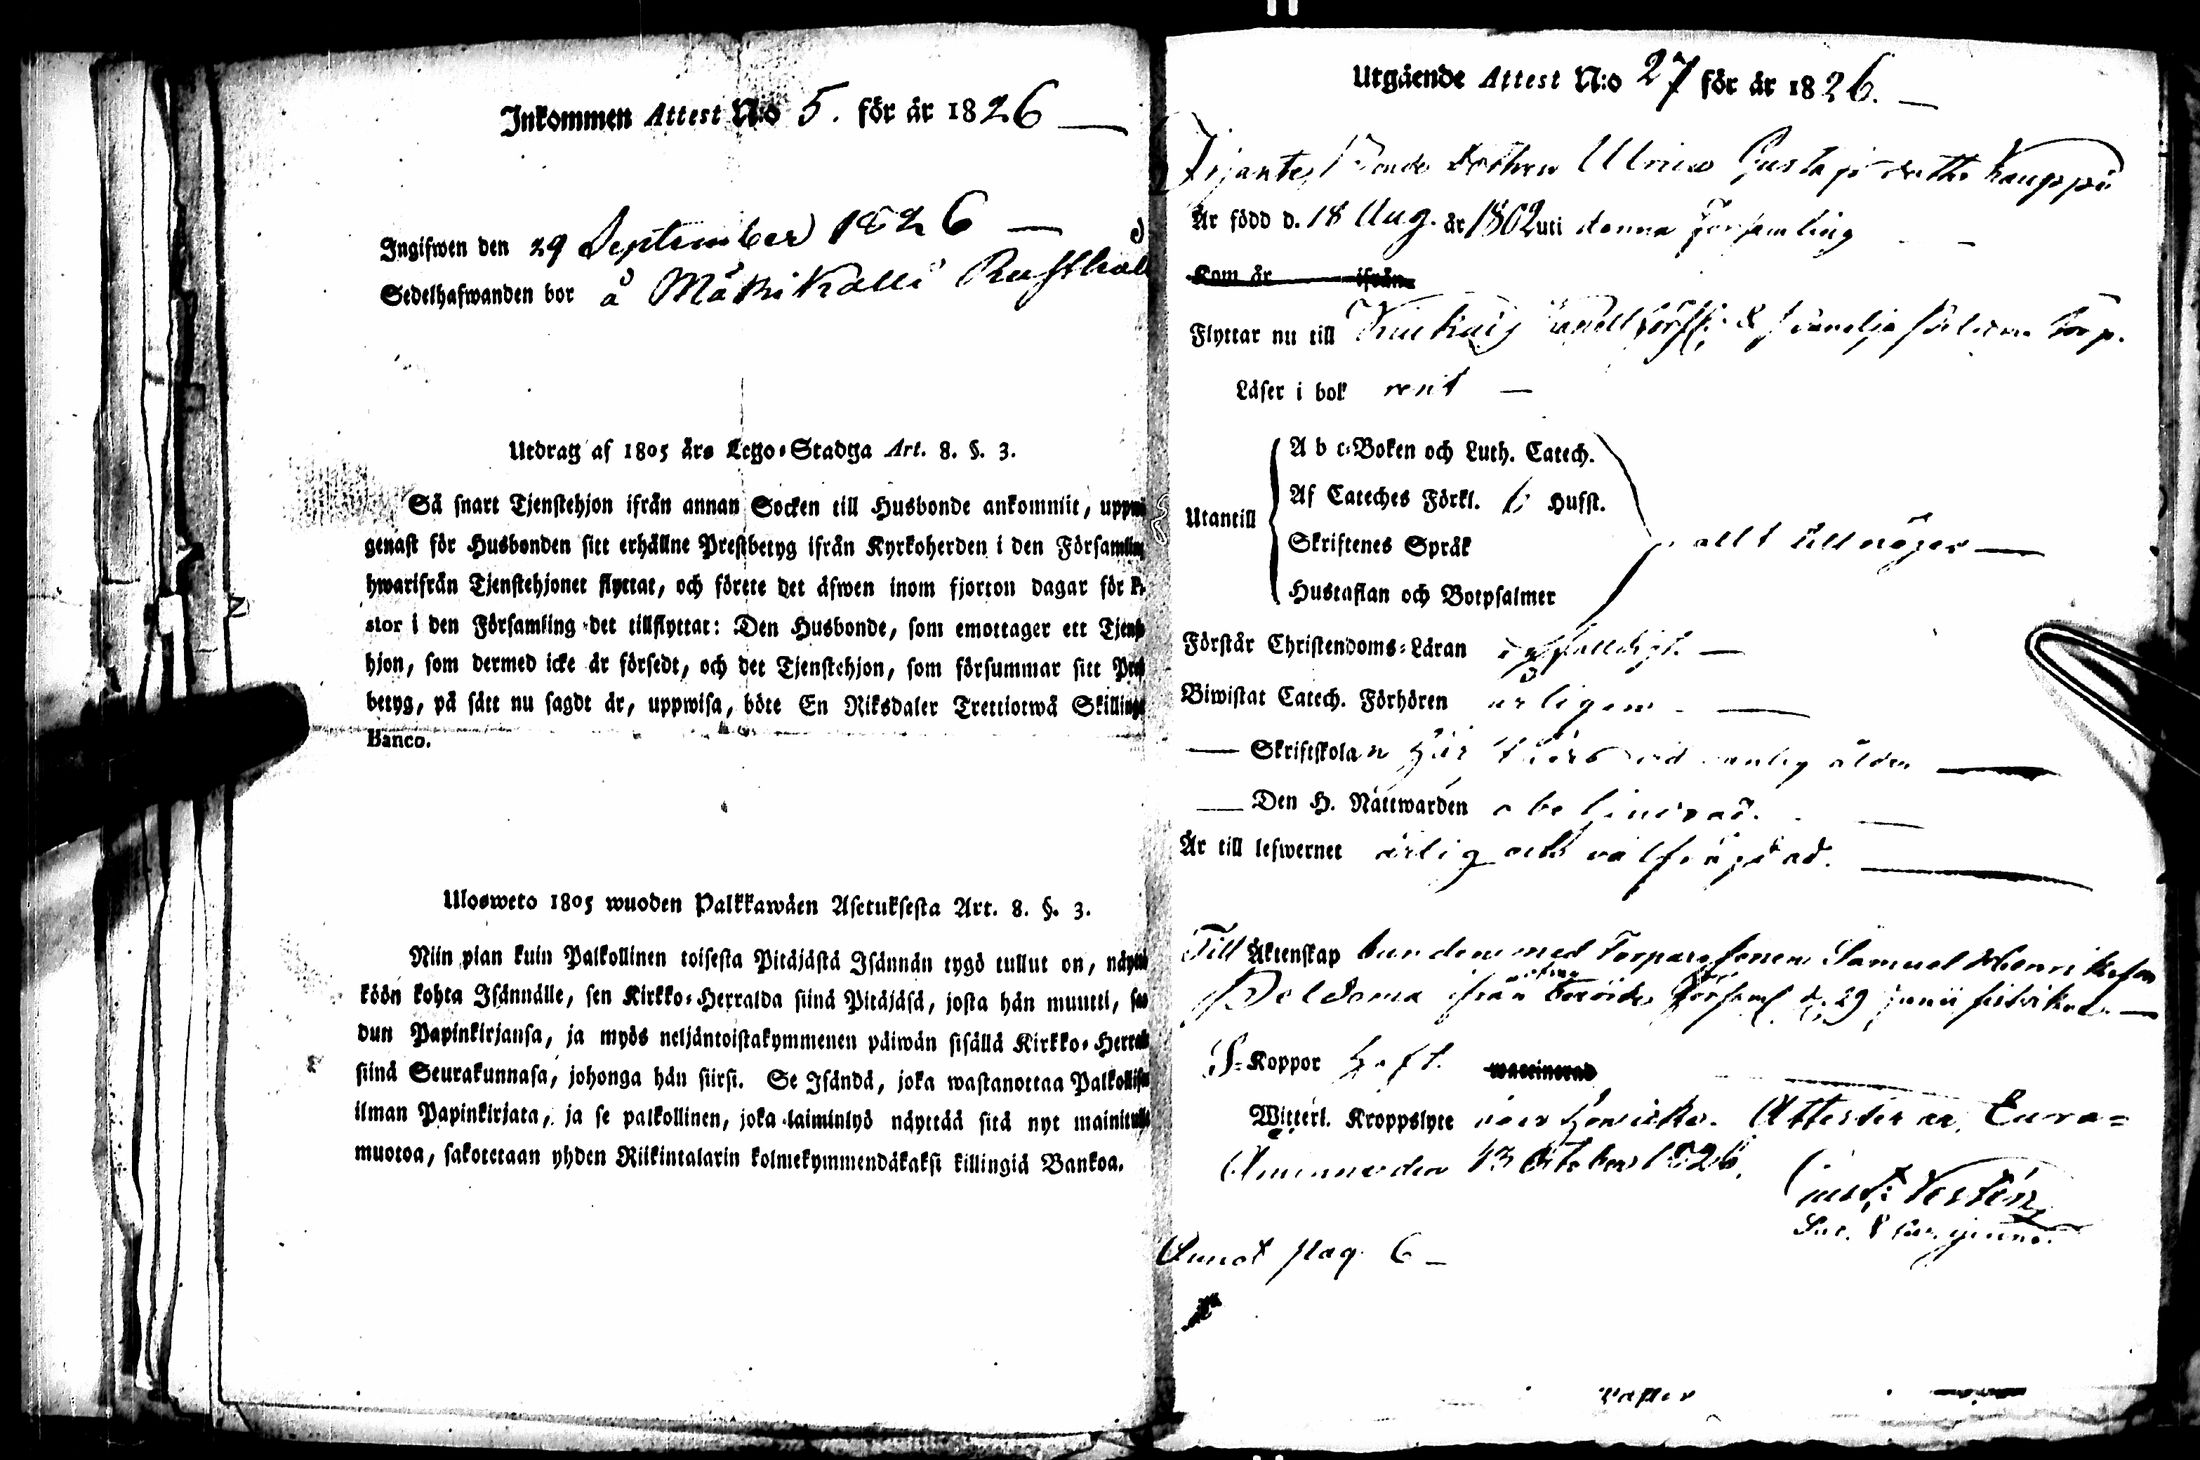 Inkommen Attest N:o 5. för år 1826
Ingifwen den 29 September 1826
Sedelhafwanden bor å Mäkikalli Rusthåll
Utdrag af 1805 års Lego-Stadga Art. 8. §. 3.
Så snart Tjenstehjon ifrån annan Socken till Husbonde ankommit, uppwi
genast för Husbonden sitt erhållne Prestbetyg ifrån Kyrkoherden i den Församlin
hwarifrån Tjenstehjonet flyttat, och förete det äfwen inom fjorton dagar för P.
stor i den Församling det tillflyttat: Den Husbonde, som emottager ett Tjenst
hjon, som dermed icke är försedt, och det Tjenstehjon, som försummar sitt Pres
betyg, på sätt nu sagdt är, uppwisa, böte En Riksdaler Trettiotwå Skilling
Banco.
Ulosweto 1805 wuoden Palkkawäen Asetuksesta Art. 8. §. 3.
Niin pian kuin Palkollinen toisesta Pitäjästä Isännän tygö tullut on, näyttä
köön kohta Isännälle, sen Kirkko-Herralda siinä Pitäjäsä, josta hän muutti, saa
dun Papinkirjansa, ja myös neljäntoistakymmenen päiwän sisällä Kirkko-Herrall
siinä Seurakunnasa, johonga hän siirsi. Se Isändä, joka wastanottaa Palkollisen
ilman Papinkirjata, ja se palkollinen, joka laiminlyö näyttää sitä nyt mainitulla
muotoa, sakotetaan yhden Riikintalarin kolmekymmendäkaksi killingiä Bankoa.
Utgående Attest N:o 27 för år 1826.
Bonde dottren Ulrica Gustafs dotter Kauppi
Är född d. 18 Aug. år 1802 uti denna Församling
Kom år ifrån
Flyttar nu till torp.
Läser i bok rent
A b c-Boken och Luth. Catech.
Af Cateches Förkl. 6 Hufst.
Utantill
Skriftenes Språk allt tillnöjes
Hustaflan och Botpsalmer
Förstår Christendoms-Läran enfalldigt.
Biwistat Catech. Förhören årligen
Skriftskolan här wid wanlig ålder
Den H. Nattwarden obehindrad.
Är till lefwernet ärlig och välfräjdad.
Till Äktenskap bunden med Torparesonen Samuel Henriksson
ifrån Församl. d. 29 junii sistvikne
S-Koppor haft. waccinerad
Witterl. Kroppslyte Attesterar, Eura-
Åminne den 13 October 1826.
Gust: Vestén
Sac.
Cunct pag 6